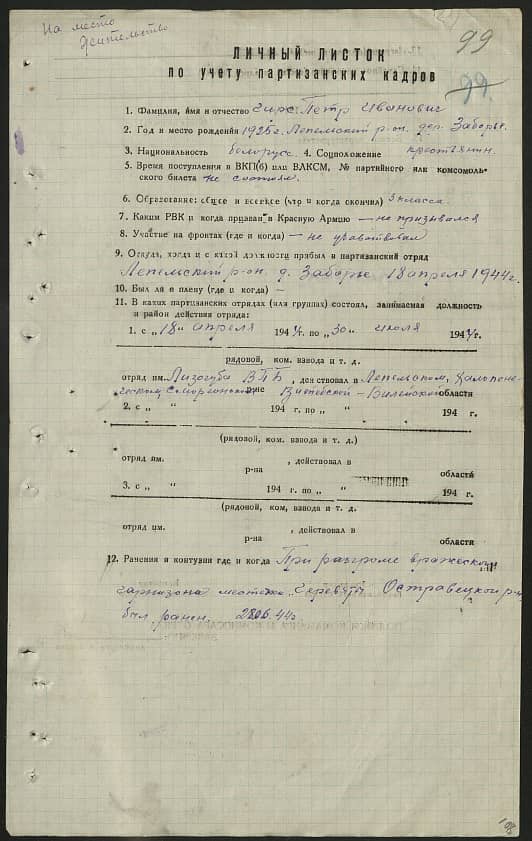 На место
99
ЛИЧНЫЙ ЛИСТОК
по учету партизанских кадров
99.
1. Фамилия, имя и отчество Гирс Петр Иванович
2. Год и место рождения 1925 г. Лепельский р-он. дер. Заборье.
3. Национальность белорусс. 4. Соцположение крестьянин.
5. Время поступления в ВКП(б) или ВЛКСМ, № партийного или комсомоль-
ского билета не состоял.
6. Образование: общее и военное (что и когда окончил) 3 класса.
7. Каким РВК и когда призван в Красную Армию — не призывался
8. Участие на фронтах (где и когда) — не участвовал
9. Откуда, когда и с какой должности прибыл в партизанский отряд
Лепельский р-он. д. Заборье 18 апреля 1944 г.
10. Был ли в плену (где и когда) —
11. В каких партизанских отрядах (или группах) состоял, занимаемая должность
и район действия отряда:
1. с „ 18 " апреля 1944 г. по „ 30 " июля 1944 г.
рядовой, ком. взвода и т. д.
отряд им. Лизогуба ВПБ, действовал в Лепельском,
Сморгоньском р-не Витебской - Вилейской области
2. с „ " 194 г. по „ " 194 г.
(рядовой, ком. взвода и т. д.)
отряд им. , действовал в
р-на области
3. с „ " 194 г. по „ " 194 г.
(рядовой, ком, взвода и т. д.
отряд им. , действовал в
р-на области
12. Ранения и контузии где и когда При разгроме вражеского
гарнизона местечко Островецкой р-н
был ранен. 44 г.